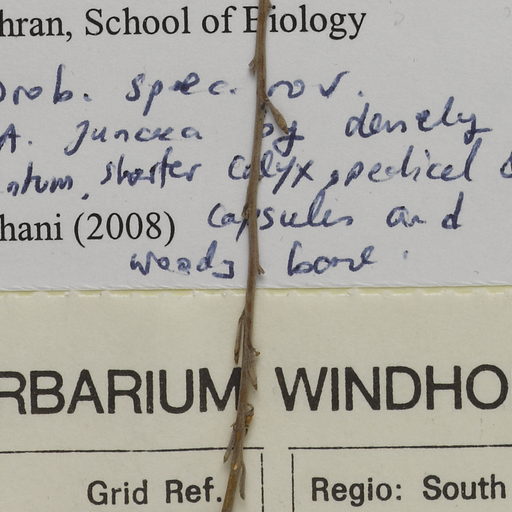 hran, School of Biology
prob. spec. nov.
A. juncea by densely
ntum, shorter calyx, pedicel &
hani (2008) capsules and
woody base.
RBARIUM WINDHO
Grid Ref. Regio: South